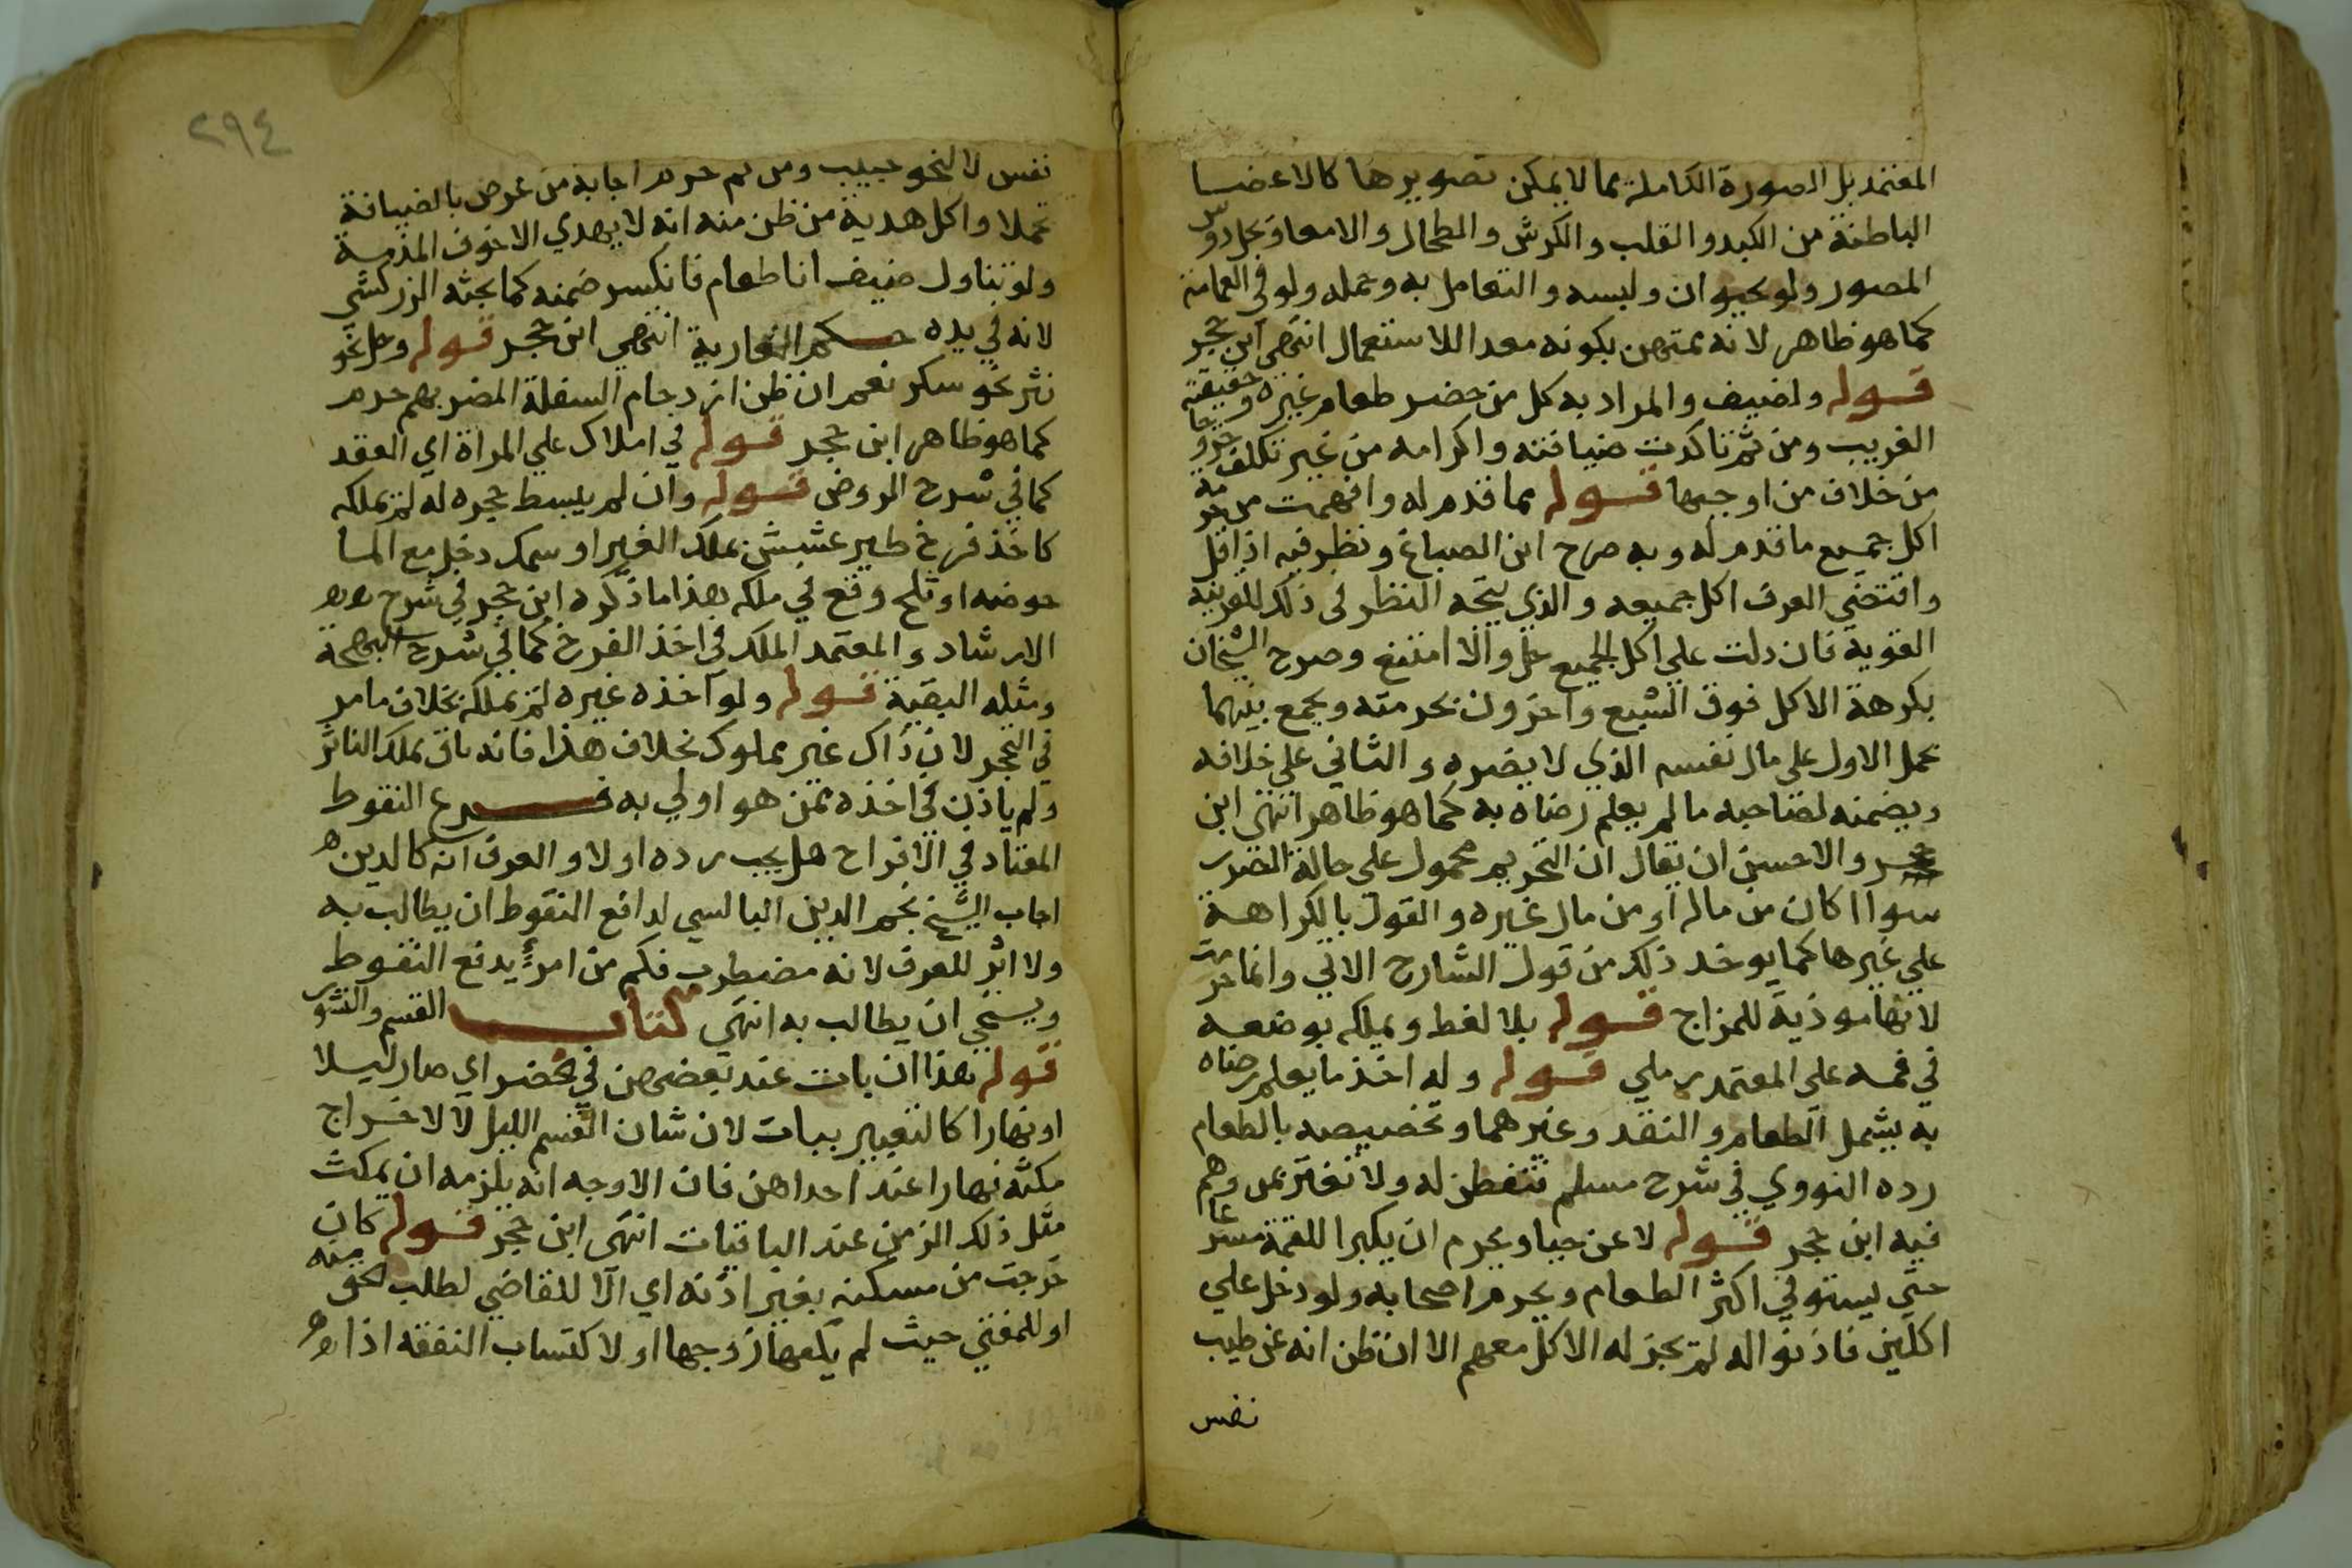 المعتمد بل الصورة الكاملة بما لا يمكن تصويرها كالاعضا
الباطنة من الكبد والقلب والكرش والطحال والامعا وبحل دوس
المصور ولو بحيوان ولبسه والتعامل به وحمله ولو في العمامة
كما هو ظاهر لانه ممتهن بكونه معدا للاستعمال انتهى ابن حجر
قوله ولضيف والمراد به كل من حضر طعام غيره وحقيقته
الغريب ومن ثم تاكدت ضيافته واكرامه من غير تكلف خروجا
من خلاف من اوجبها قوله مما قدم له وافهمت من حرمة
اكل جميع ما قدم له وبه صرح ابن الصباغ ونظر فيه اذا قل
واقتضي العرف اكل جميعه والذي يتجه النظر في ذلك للقرينة
القوية فان دلت علي اكل الجميع حل والا امتنع وصرح الشيخان
بكرهة الاكل فوق الشبع واخرون بحرمته ويجمع بينهما
بحمل الاول على مال نفسه الذي لا يضره والثاني على خلافه
ويضمنه لصاحبه ما لم يعلم رضاه به كما هو ظاهر انتهى ابن
حجر والاحسن ان يقال ان التحريم محمول على حالة الضرر
سواا كان من ماله او من مال غيره والقول بالكراهة
علي غيرها كما يوخد ذلك من قول الشارح الاتي وانما حرمت
لانها موذية للمزاج قوله بلا لفظ ويملكه بوضعه
في فمه على المعتمد رملي قوله وله اخذ ما يعلم رضاه
به يشمل الطعام والنقد وغيرهما وتخصيصه بالطعام
رده النووي في شرح مسلم فتفطن له ولا تغتر بمن وهم
فيه ابن حجر قوله لا عن حيا ويحرم ان يكبر اللقمة مسرعا
حتي يستوفي اكثر الطعام ويحرم اصحابه ولو دخل علي
اكلين فاذنوا له لم يجز له الاكل معهم الا ان ظن انه عن طيب
نفس
٢٩٤
نفس لا لنحو حبيب ومن ثم حرم اجابة من عرض بالضيافة
تجملا واكل هدية من ظن منه انه لا يهدي الا خوف المذمة
ولو تناول ضيف انا طعام فانكسر ضمنه كما بحثه الزركشي
لانه في يده حكم العارية انتهي ابن حجر قوله وحل نحو
نثر نحو سكر نعم ان ظن ازدحام السفلة المضر بهم حرم
كما هو ظاهر ابن حجر قوله في املاك علي المراة اي العقد
كما في شرح الروض قوله وان لم يبسط حجره له لم يملكه
كاخذ فرخ طير عشش بملك الغير او سمك دخل مع الما
حوضه او ثلج وقع في ملكه هذا ما ذكره ابن حجر في شرح
الارشاد والمعتمد الملك في اخذ الفرخ كما في شرح البهجة
ومثله البقية قوله ولو اخذه غيره لم يملكه بخلاف ما مر
في التحجر لان ذاك غير مملوك بخلاف هذا فانه باق بملك الناثر
ولم ياذن في اخذه ممن هو اولي به فرع النقوط
المعتاد في الافراح هل يجب رده اولا والعرف انه كالدين
اجاب الشيخ نجم الدين البالسي لدافع النقوط ان يطالب به
ولا اثر للعرف لانه مضطرب فكم من امرئ يدفع النقوط
ويستحي ان يطالب به انتهى كتاب القسم والنشوز
قوله هذا ان بات عند بعضهن في محضر اي صار ليلا
او نهارا كالتعبير ببات لان شان القسم الليل لا لاخراج
مكثه نهارا عند احداهن فان الاوجه انه يلزمه ان يمكث
مثل ذلك الزمن عند الباقيات انتهى ابن حجر قوله كان
خرجت من مسكنه بغير اذنه اي الا للقاضي لطلب الحق منه
او للمفتي حيث لم يكفها زوجها او لاكتساب النفقة اذا